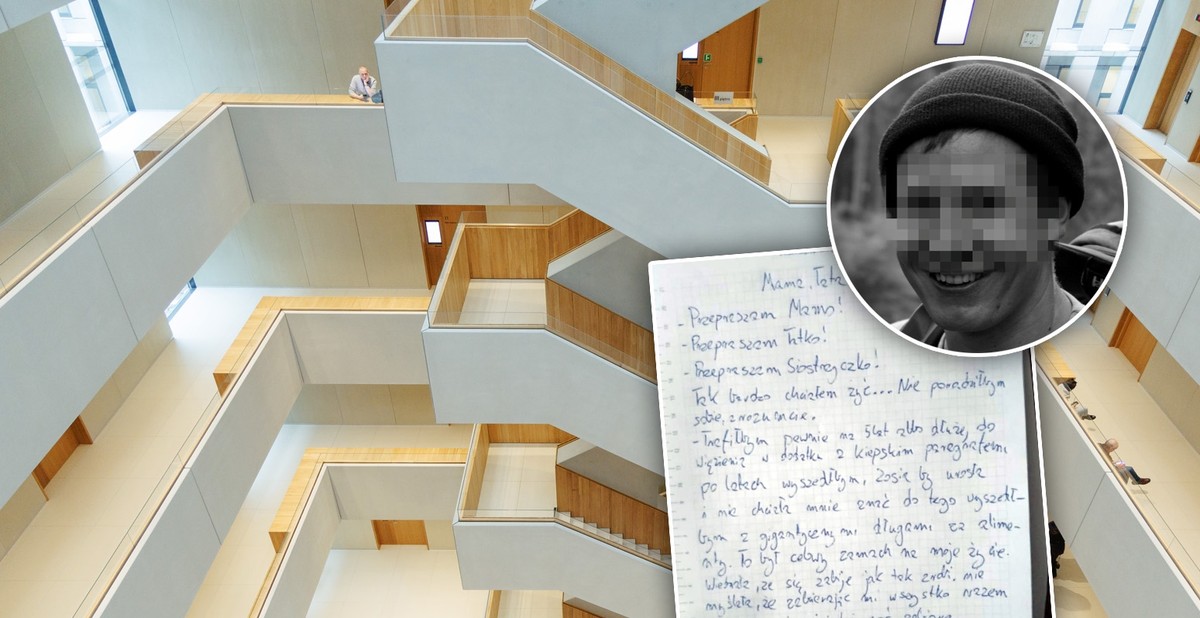 Mamo, Tato
- Przepraszam Mamo!
- Przepraszam Tatko!
- Przepraszam Siostrzyczko!
Tak bardzo chciałem żyć... Nie poradziłbym
sobie, zrozumcie.
- Trafiłbym pewnie na 5 lat albo dłużej do
więzienia w dodatku z kiepskim paragrafem,
po latach wyszedłbym, Zosia by urosła
i nie chciała mnie znać do tego wyszedł-
bym z gigantycznymi długami za alime-
nty. To był celowy zamach na moje życie.
że się zabije jak tak zrobi, nie
myślała, że zabierając mi wszystko razem